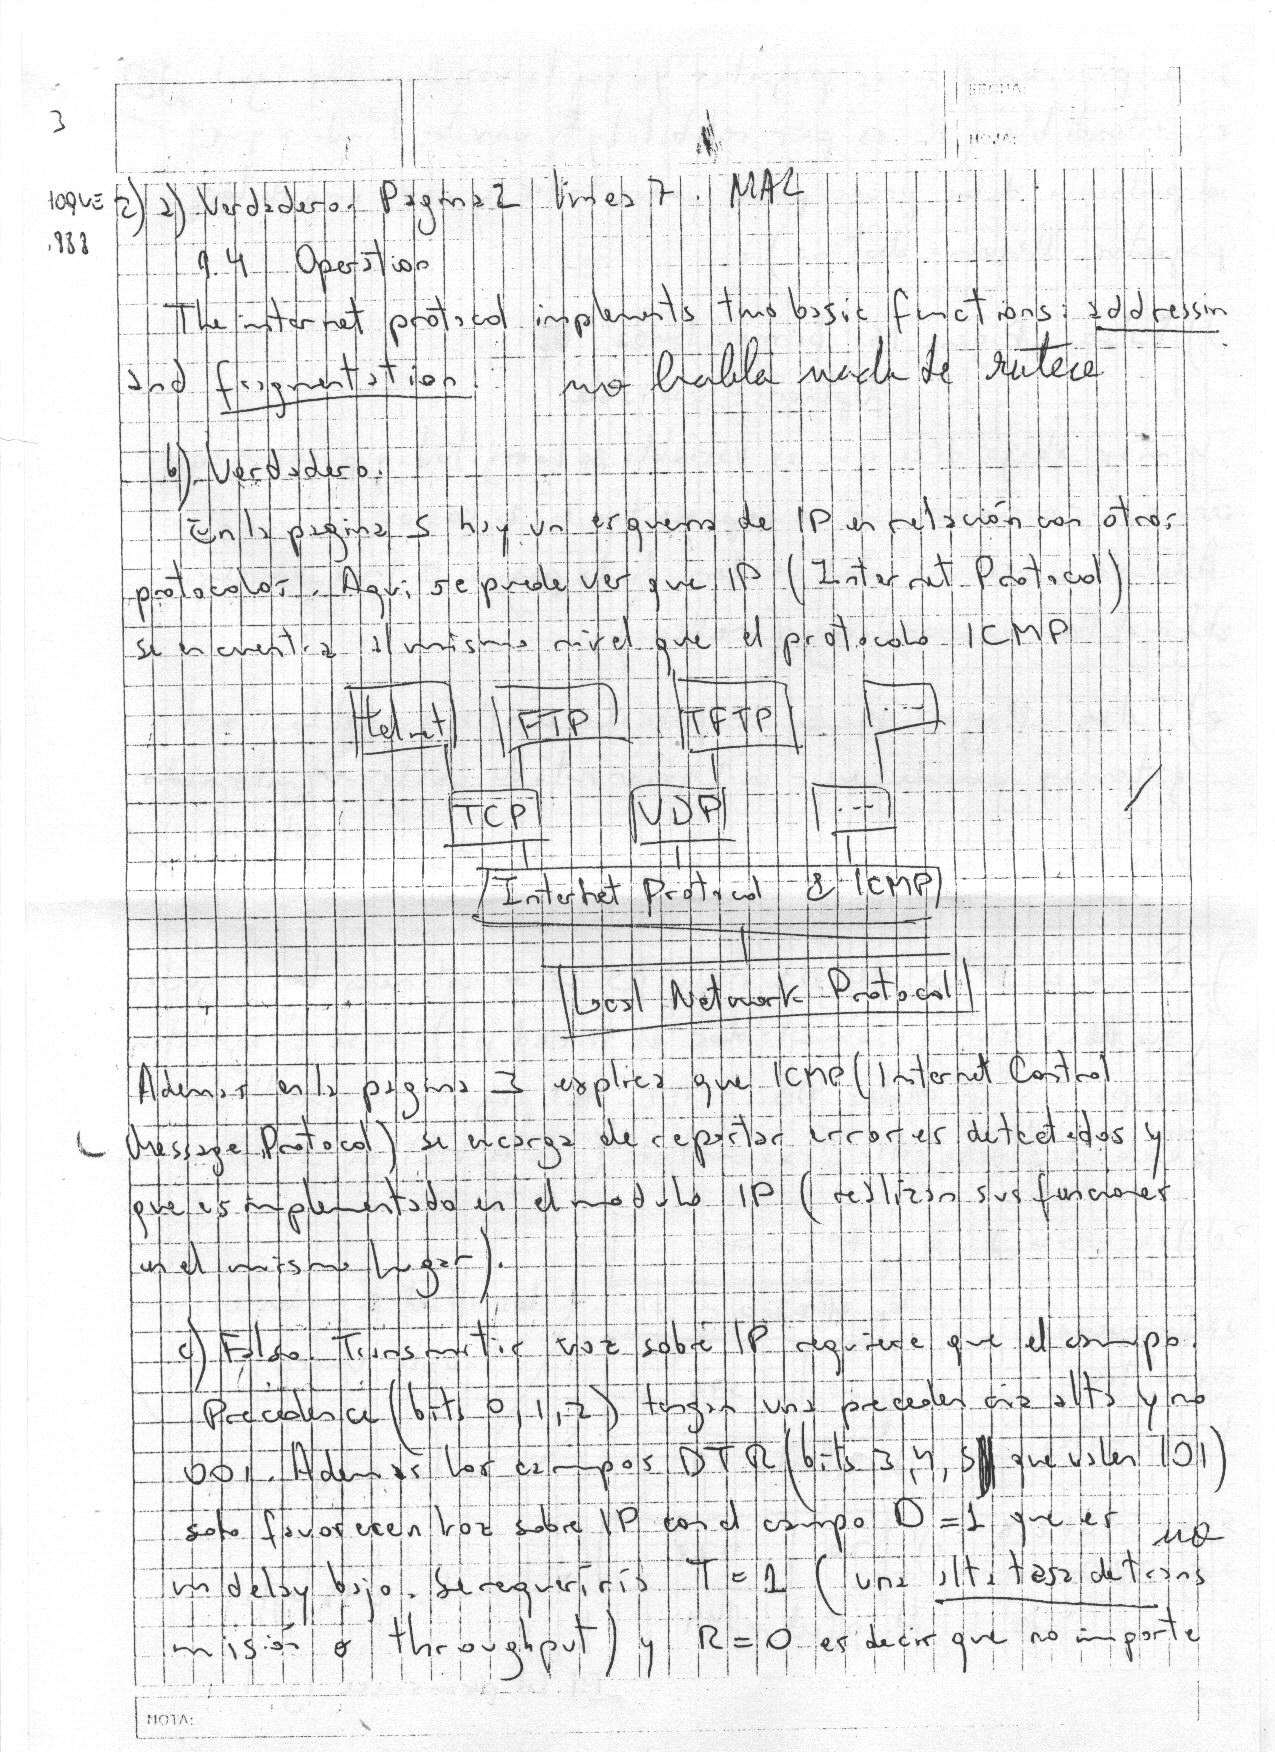 FECHA:
3
HOJA:
2) a) Verdadero. Pagina 2 linea 7. MAL
1.4 Operation
The internet protocol implements two basic functions: addressin
and fragmentation. no habla nada de ruteo
b) Verdadero.
En la pagina 5 hay un esquema de IP en relación con otros
protocolos. Aqui se puede ver que IP (Internet Protocol)
se encuentra al mismo nivel que el protocolo ICMP
telnet FTP TFTP ...
TCP UDP ...
Internet Protocol & ICMP
Local Network Protocol
Ademas en la pagina 3 explica que ICMP (Internet Control
Message Protocol) se encarga de reportar errores detectados y
que es implementado en el modulo IP (realizan sus funciones
en el mismo lugar).
c) Falso. Transmitir voz sobre IP requiere que el campo
Precedence (bits 0,1,2) tengan una precedencia alta y no
001. Ademas los campos DTR (bits 3,4,5 que valen 101)
solo favorecen voz sobre IP con el campo D=1 que es
no
un delay bajo. Se requeriria T=1 (una alta tasa de trans
misión o throughput) y R=0 es decir que no importe
NOTA: